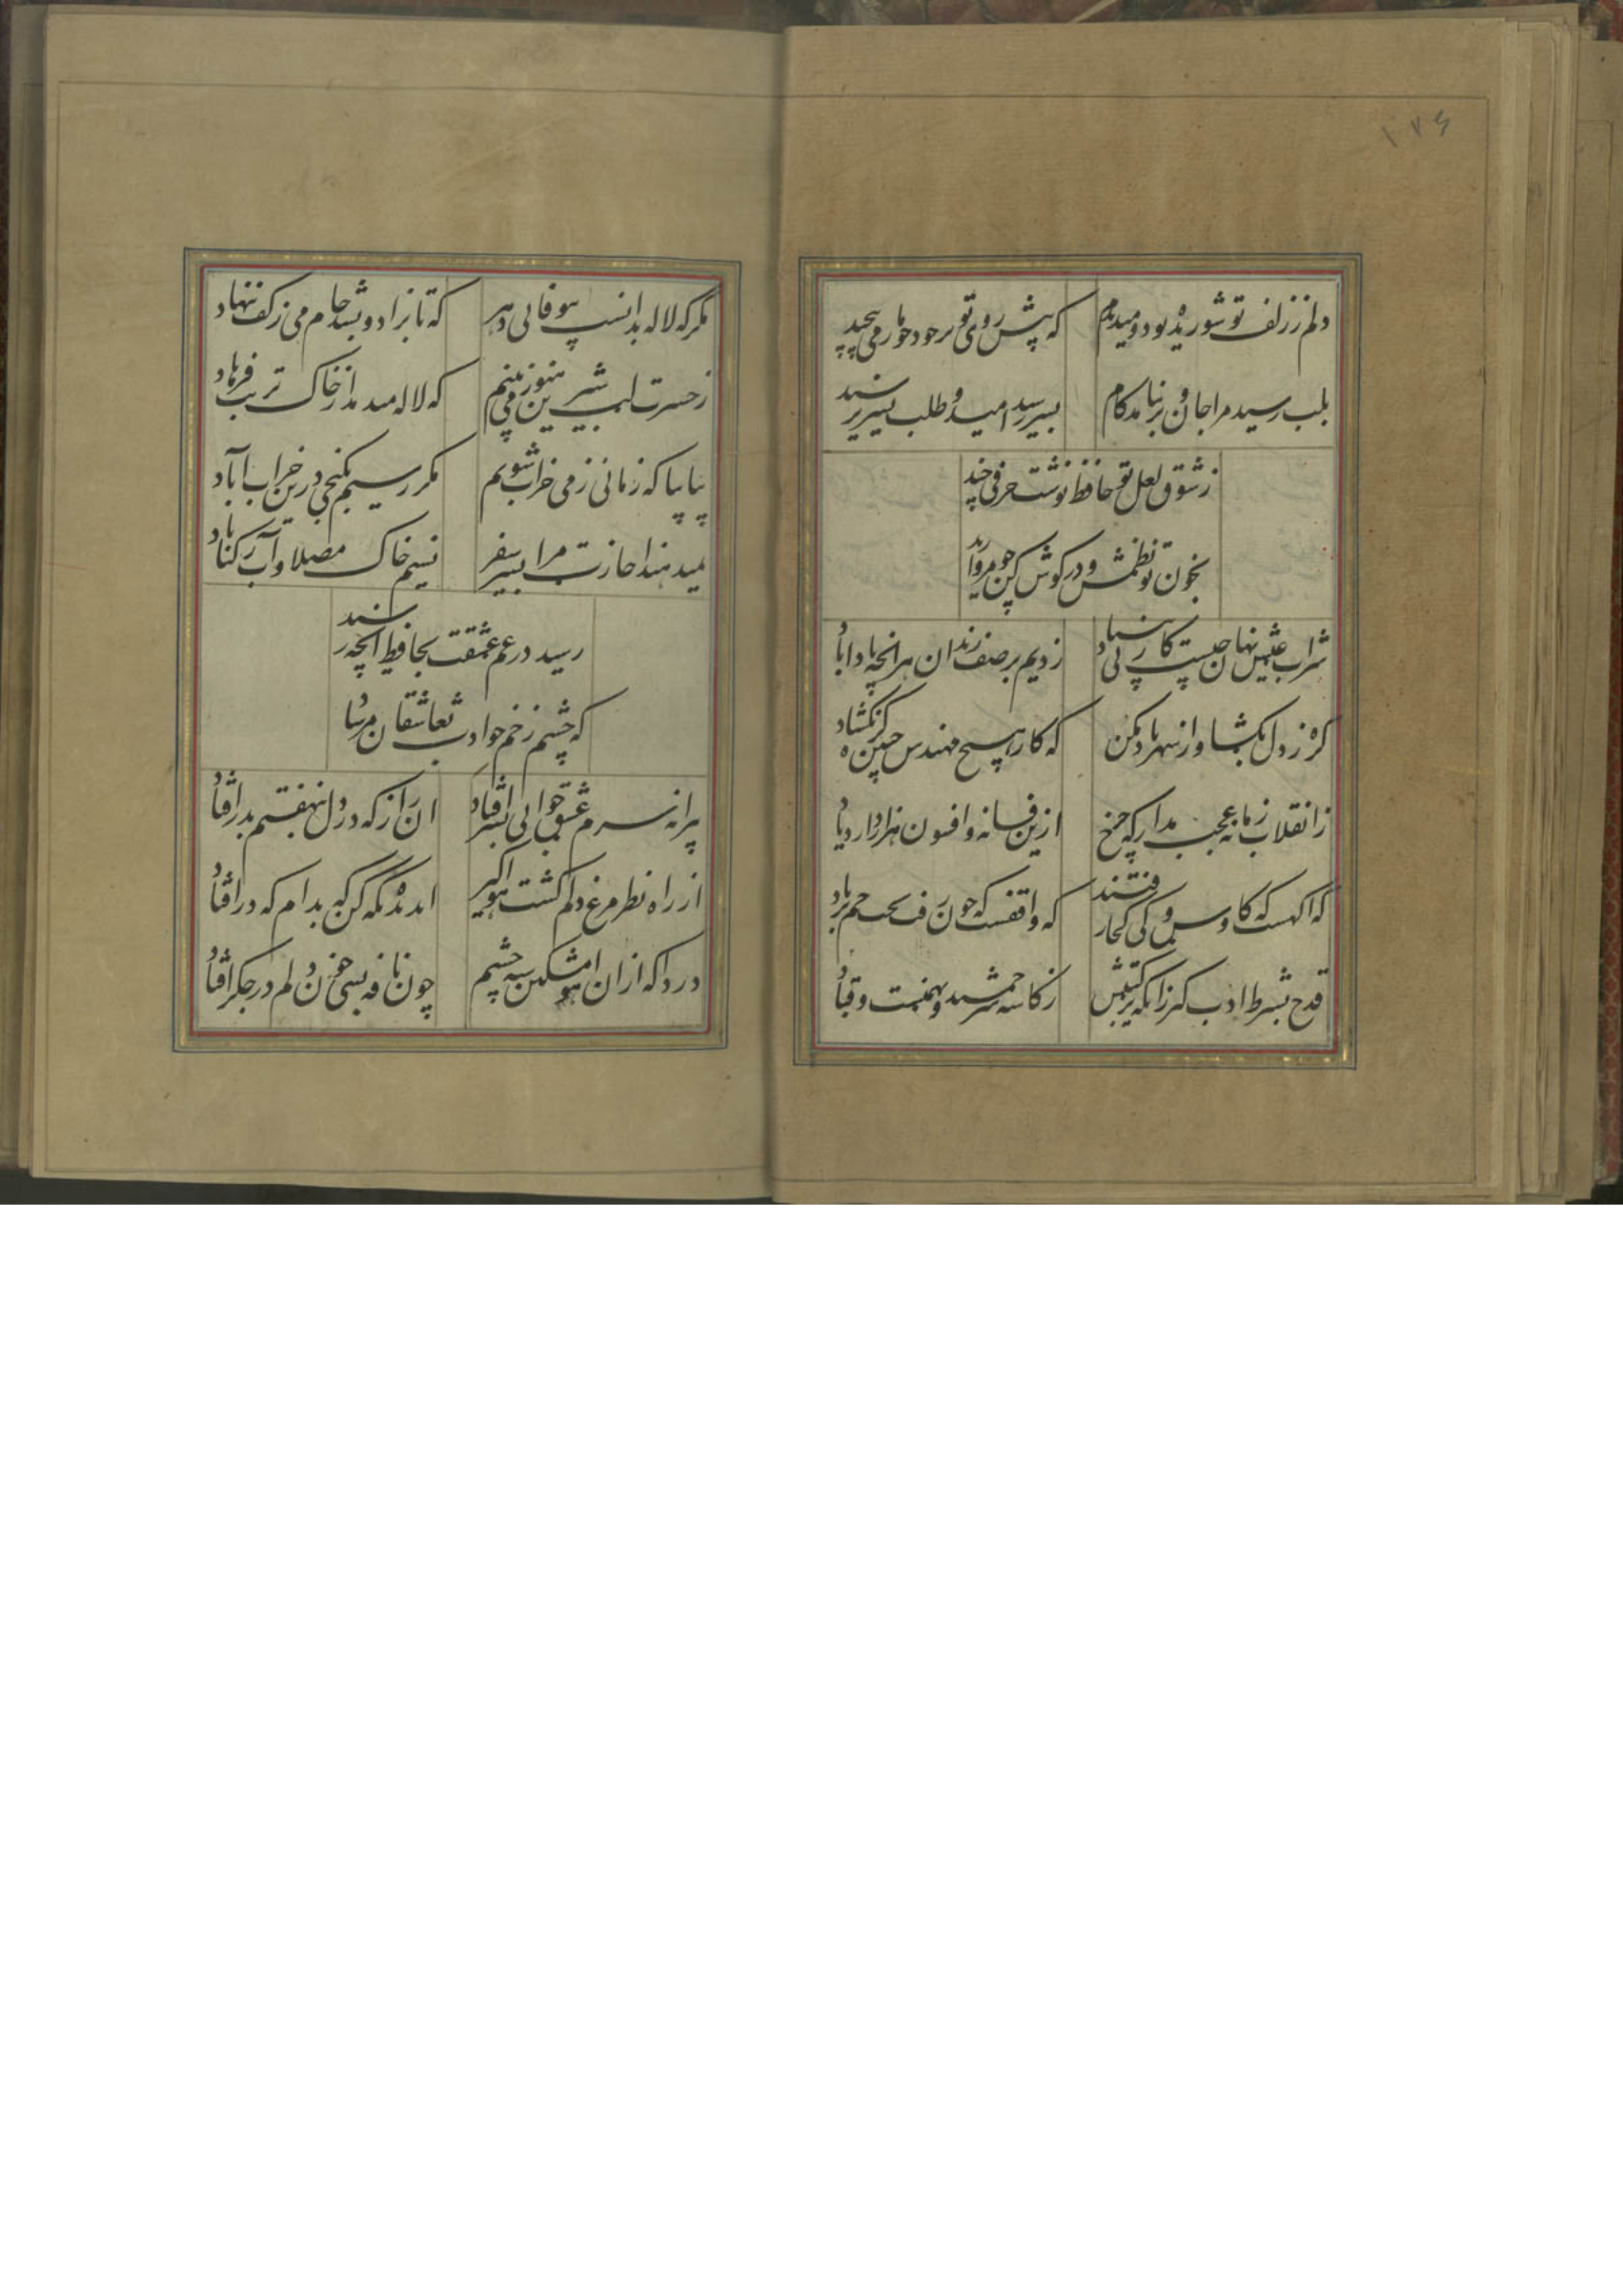 ۱۷۴
دلم ز زلف تو شوریده بود و میدیدم که پیش روی تو بر خود چو مار می پیچید
بلب رسید مرا جان و بر نیامد کام بسر رسید امید و طلب بسر نرسید
ز شوق لعل تو حافظ نوشت حرفی چند
بخون تو نظمش و در گوش کن چو مروارید
شراب عیش نهان چیست کار بی بنیاد زدیم بر صف رندان هر انچه بادا باد
گره ز دل بگشا و از سپهر یاد مکن که کار هیچ مهندس چنین گره نگشاد
ز انقلاب زمانه عجب مدار که چرخ ازین فسانه و افسون هزار دارد یاد
که اگهست که کاوس و کی کجا رفتند که واقفست که چون رفت تخت جم بر باد
قدح بشرط ادب گیر زانکه ترکیبش ز کاسه سر جمشید و بهمنست و قباد
مگر که لاله بدانست بیوفائی دهر که تا بزاد و بشد جام می ز کف ننهاد
ز حسرت لب شیرین هنوز می بینم که لاله میدمد از خاک تربت فرهاد
بیا بیا که زمانی ز می خراب شویم مگر رسیم بگنجی درین خراب اباد
نمیدهند اجازت مرا بسیر سفر نسیم خاک مصلا و آب رکناباد
رسید در غم عشقت بحافظ انچه رسید
که چشم زخم حوادث بعاشقان مرساد
پیرانه سرم عشق جوانی بسر افتاد ان راز که در دل بنهفتم بدر افتاد
از راه نظر مرغ دلم گشت هواگیر ای دیده نگه کن که بدام که در افتاد
دردا که از ان اهو مشکین سیه چشم چون نافه بسی خون دلم در جگر افتاد